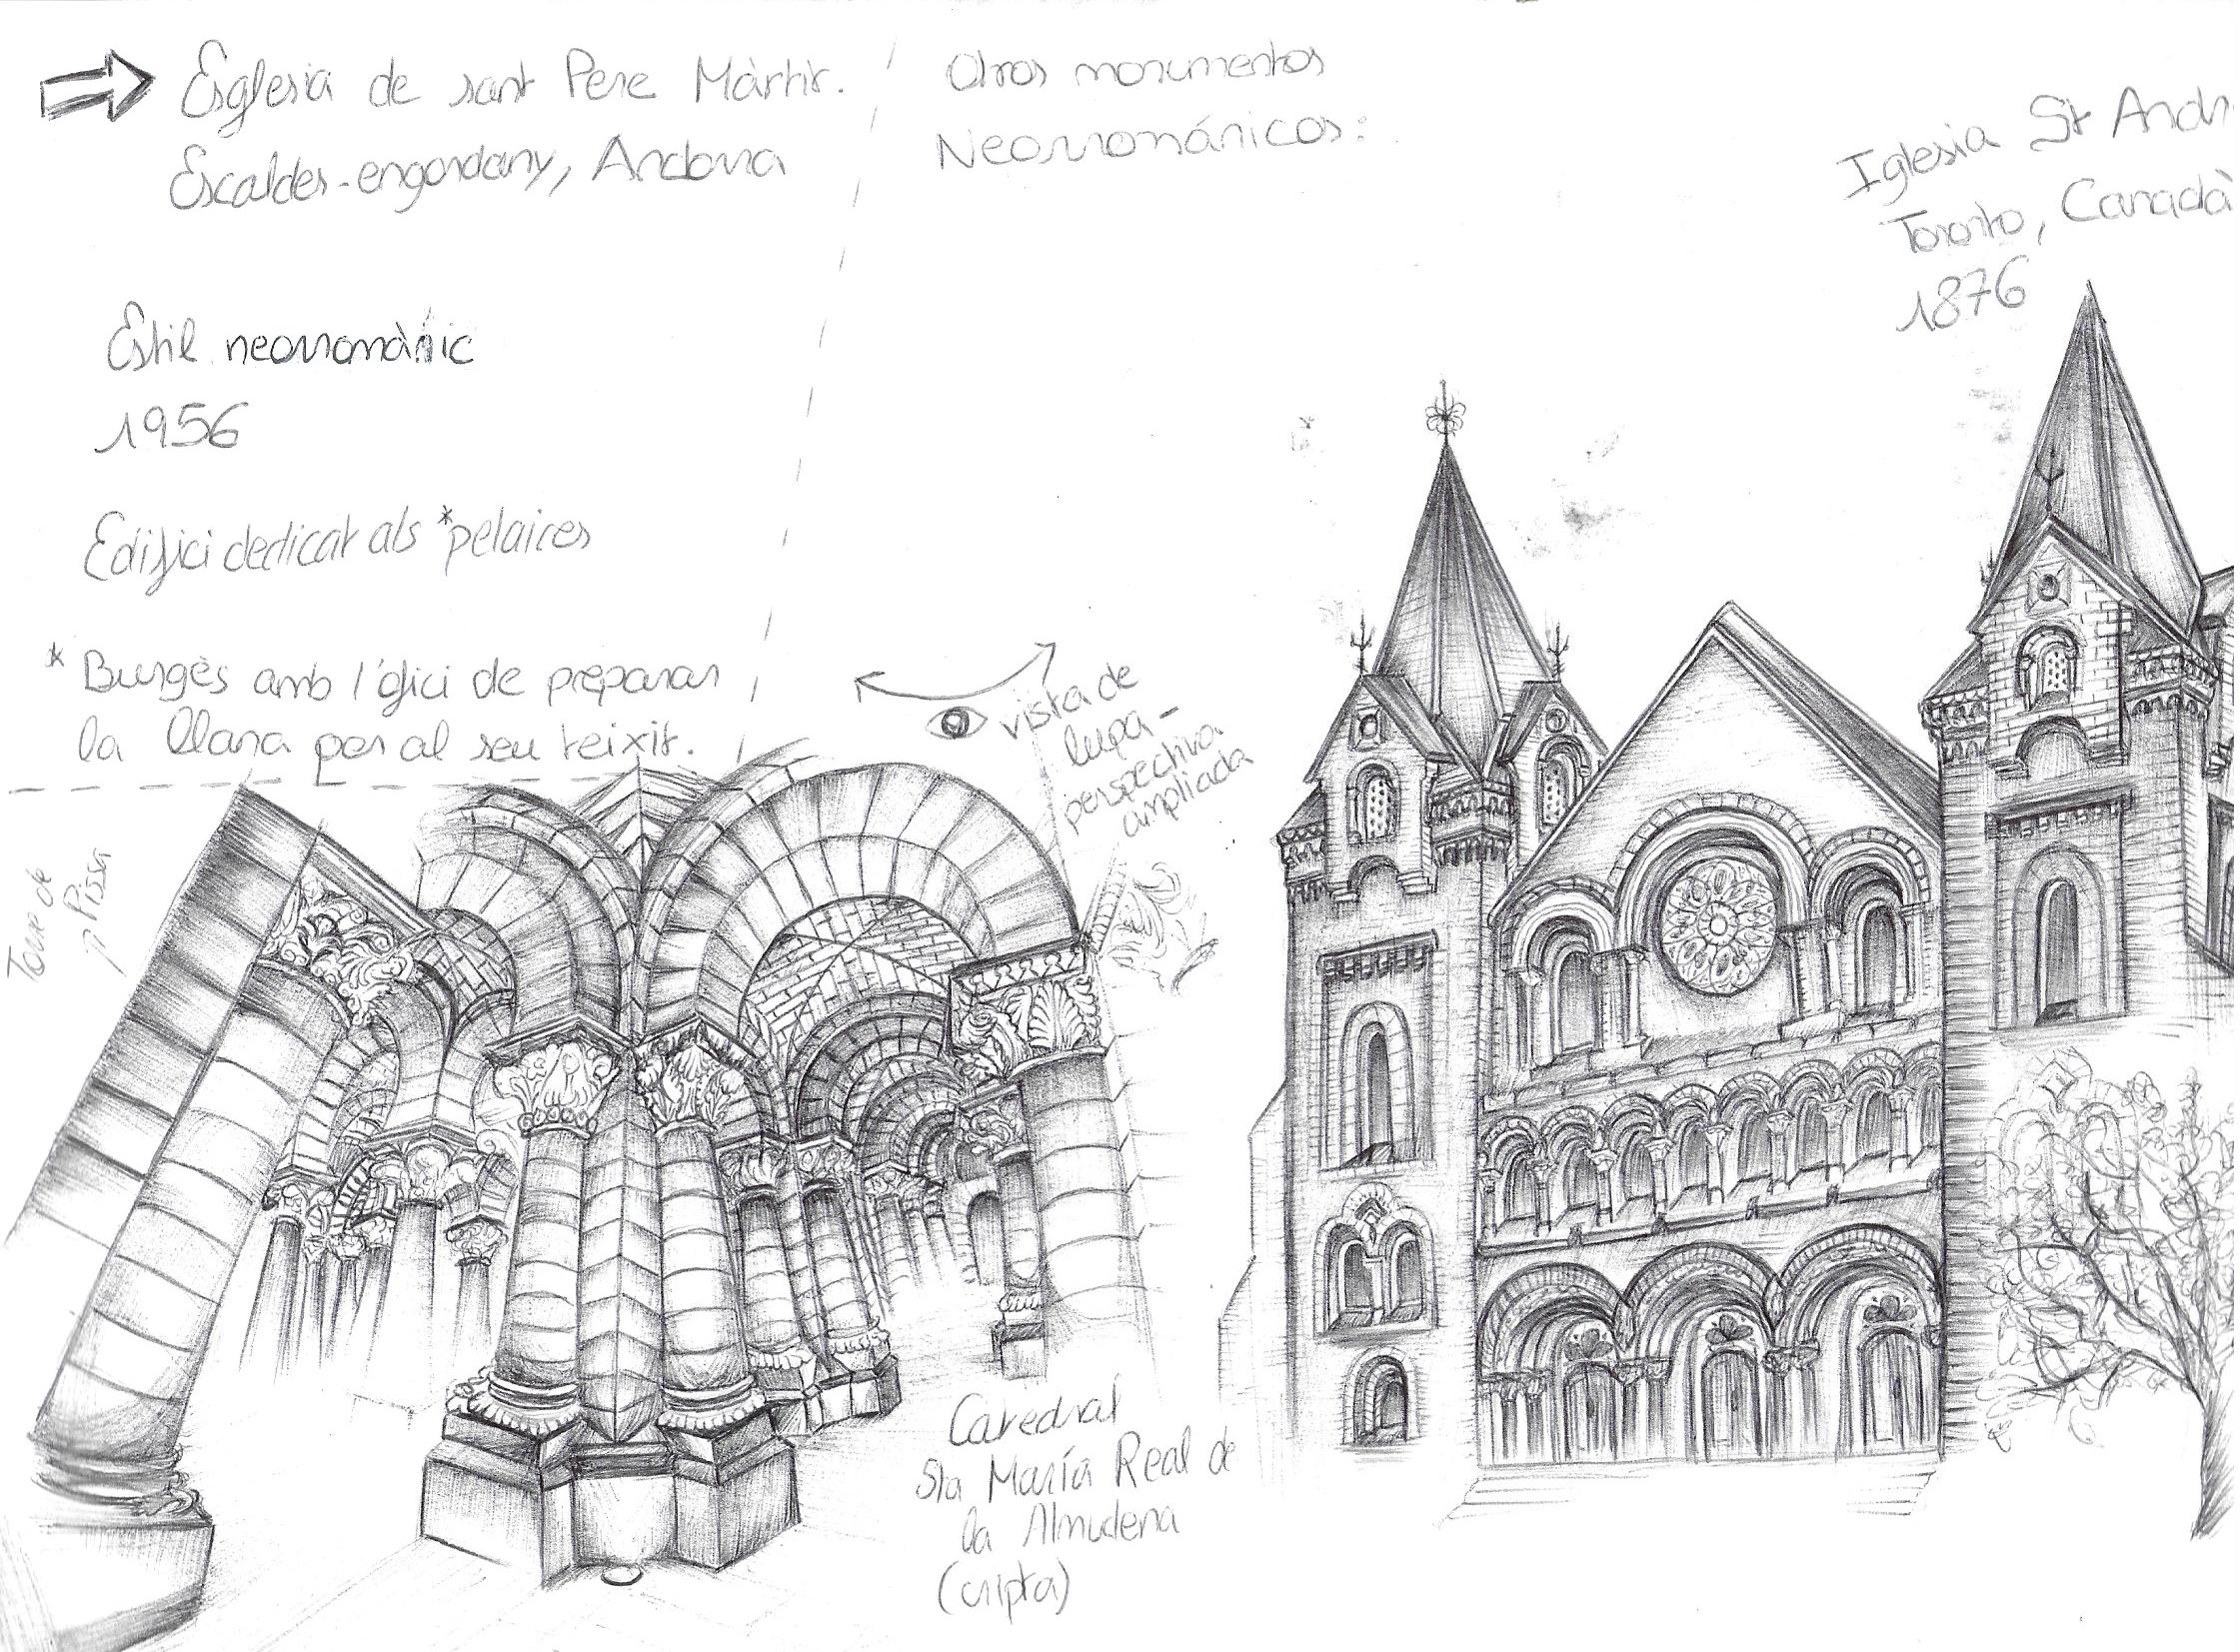 Església de sant Pere Màrtir.
Escaldes-engordany, Andorra
Estil neorromànic
1956
Edifici dedicat als *pelaires
* Burgès amb l'ofici de preparar
la llana per al seu teixit.
Otros monumentos
Neorrománicos:
Iglesia St Andr
Toronto, Canadà
1876
vista de
lupa -
perspectiva
ampliada
Torre de
Pissa
Catedral
Sta María Real de
la Almudena
(cripta)